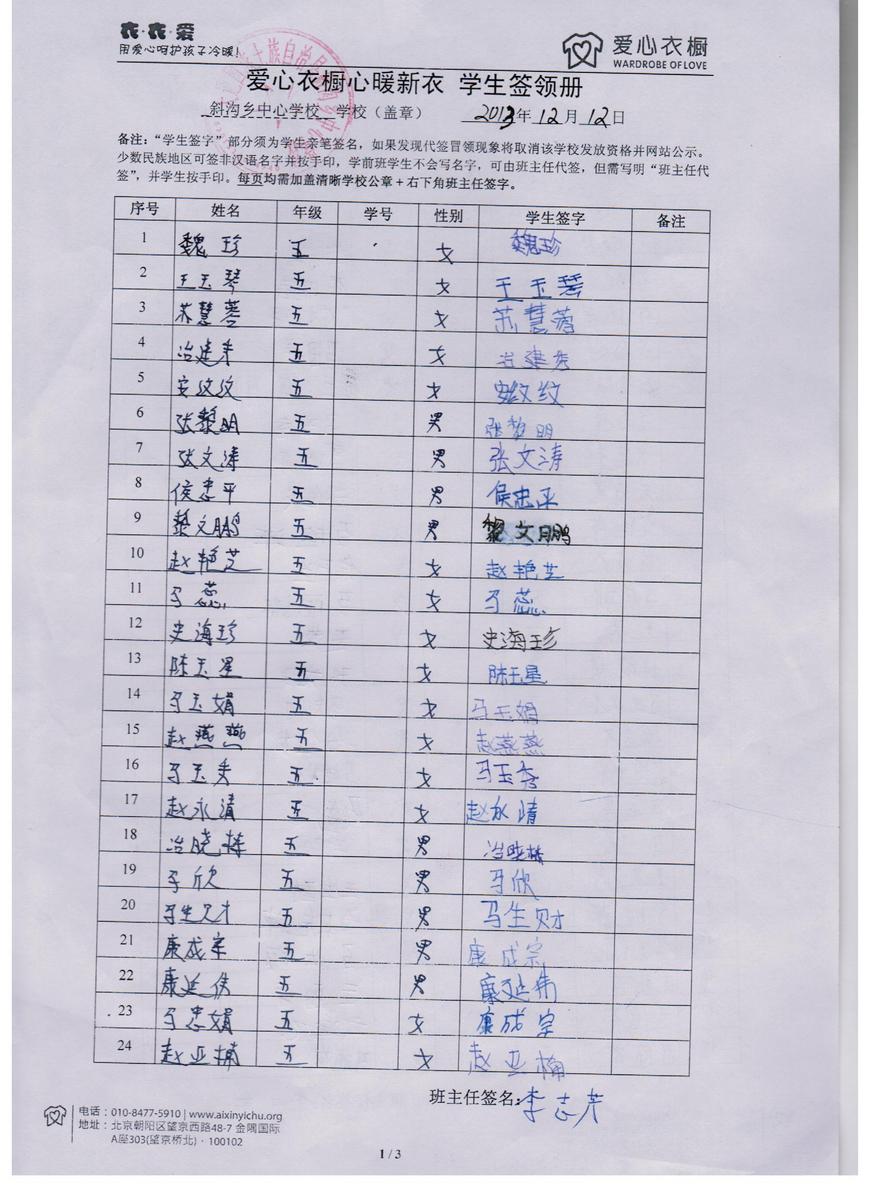 衣·衣·爱
用爱心呵护孩子冷暖!
爱心衣橱
WARDROBE OF LOVE
爱心衣橱心暖新衣 学生签领册
斜沟乡中心学校 学校（盖章） 2013年12月12日
备注：“学生签字”部分须为学生亲笔签名，如果发现代签冒领现象将取消该学校发放资格并网站公示。
少数民族地区可签非汉语名字并按手印，学前班学生不会写名字，可由班主任代签，但需写明“班主任代
签”，并学生按手印。每页均需加盖清晰学校公章+右下角班主任签字。
序号 姓名 年级 学号 性别 学生签字 备注
1 魏珍 五 女 魏珍
2 王玉琴 五 女 王玉琴
3 苏慧蓉 五 女 苏慧蓉
4 冶建 五 女 冶建
5 安纹纹 五 女 安纹纹
6 张黎明 五 男 张黎明
7 张文涛 五 男 张文涛
8 侯忠平 五 男 侯忠平
9 黎文鹏 五 男 黎文鹏
10 赵艳芝 五 女 赵艳芝
11 马蕊 五 女 马蕊
12 史海珍 五 女 史海珍
13 陈玉星 五 女 陈玉星
14 马玉娟 五 女 马玉娟
15 赵燕燕 五 女 赵燕燕
16 马玉秀 五 女 马玉秀
17 赵永清 五 女 赵永晴
18 冶晓栋 五 男 冶晓栋
19 马欣 五 男 马欣
20 马生财 五 男 马生财
21 康成宗 五 男 康成宗
22 康延伟 五 男 康延伟
23 马忠娟 五 女 康成宗
24 赵亚楠 五 女 赵亚楠
班主任签名：李志芳
电话：010-8477-5910 | www.aixinyichu.org
地址：北京朝阳区望京西路48-7 金隅国际
A座303(望京桥北)·100102
1 / 3